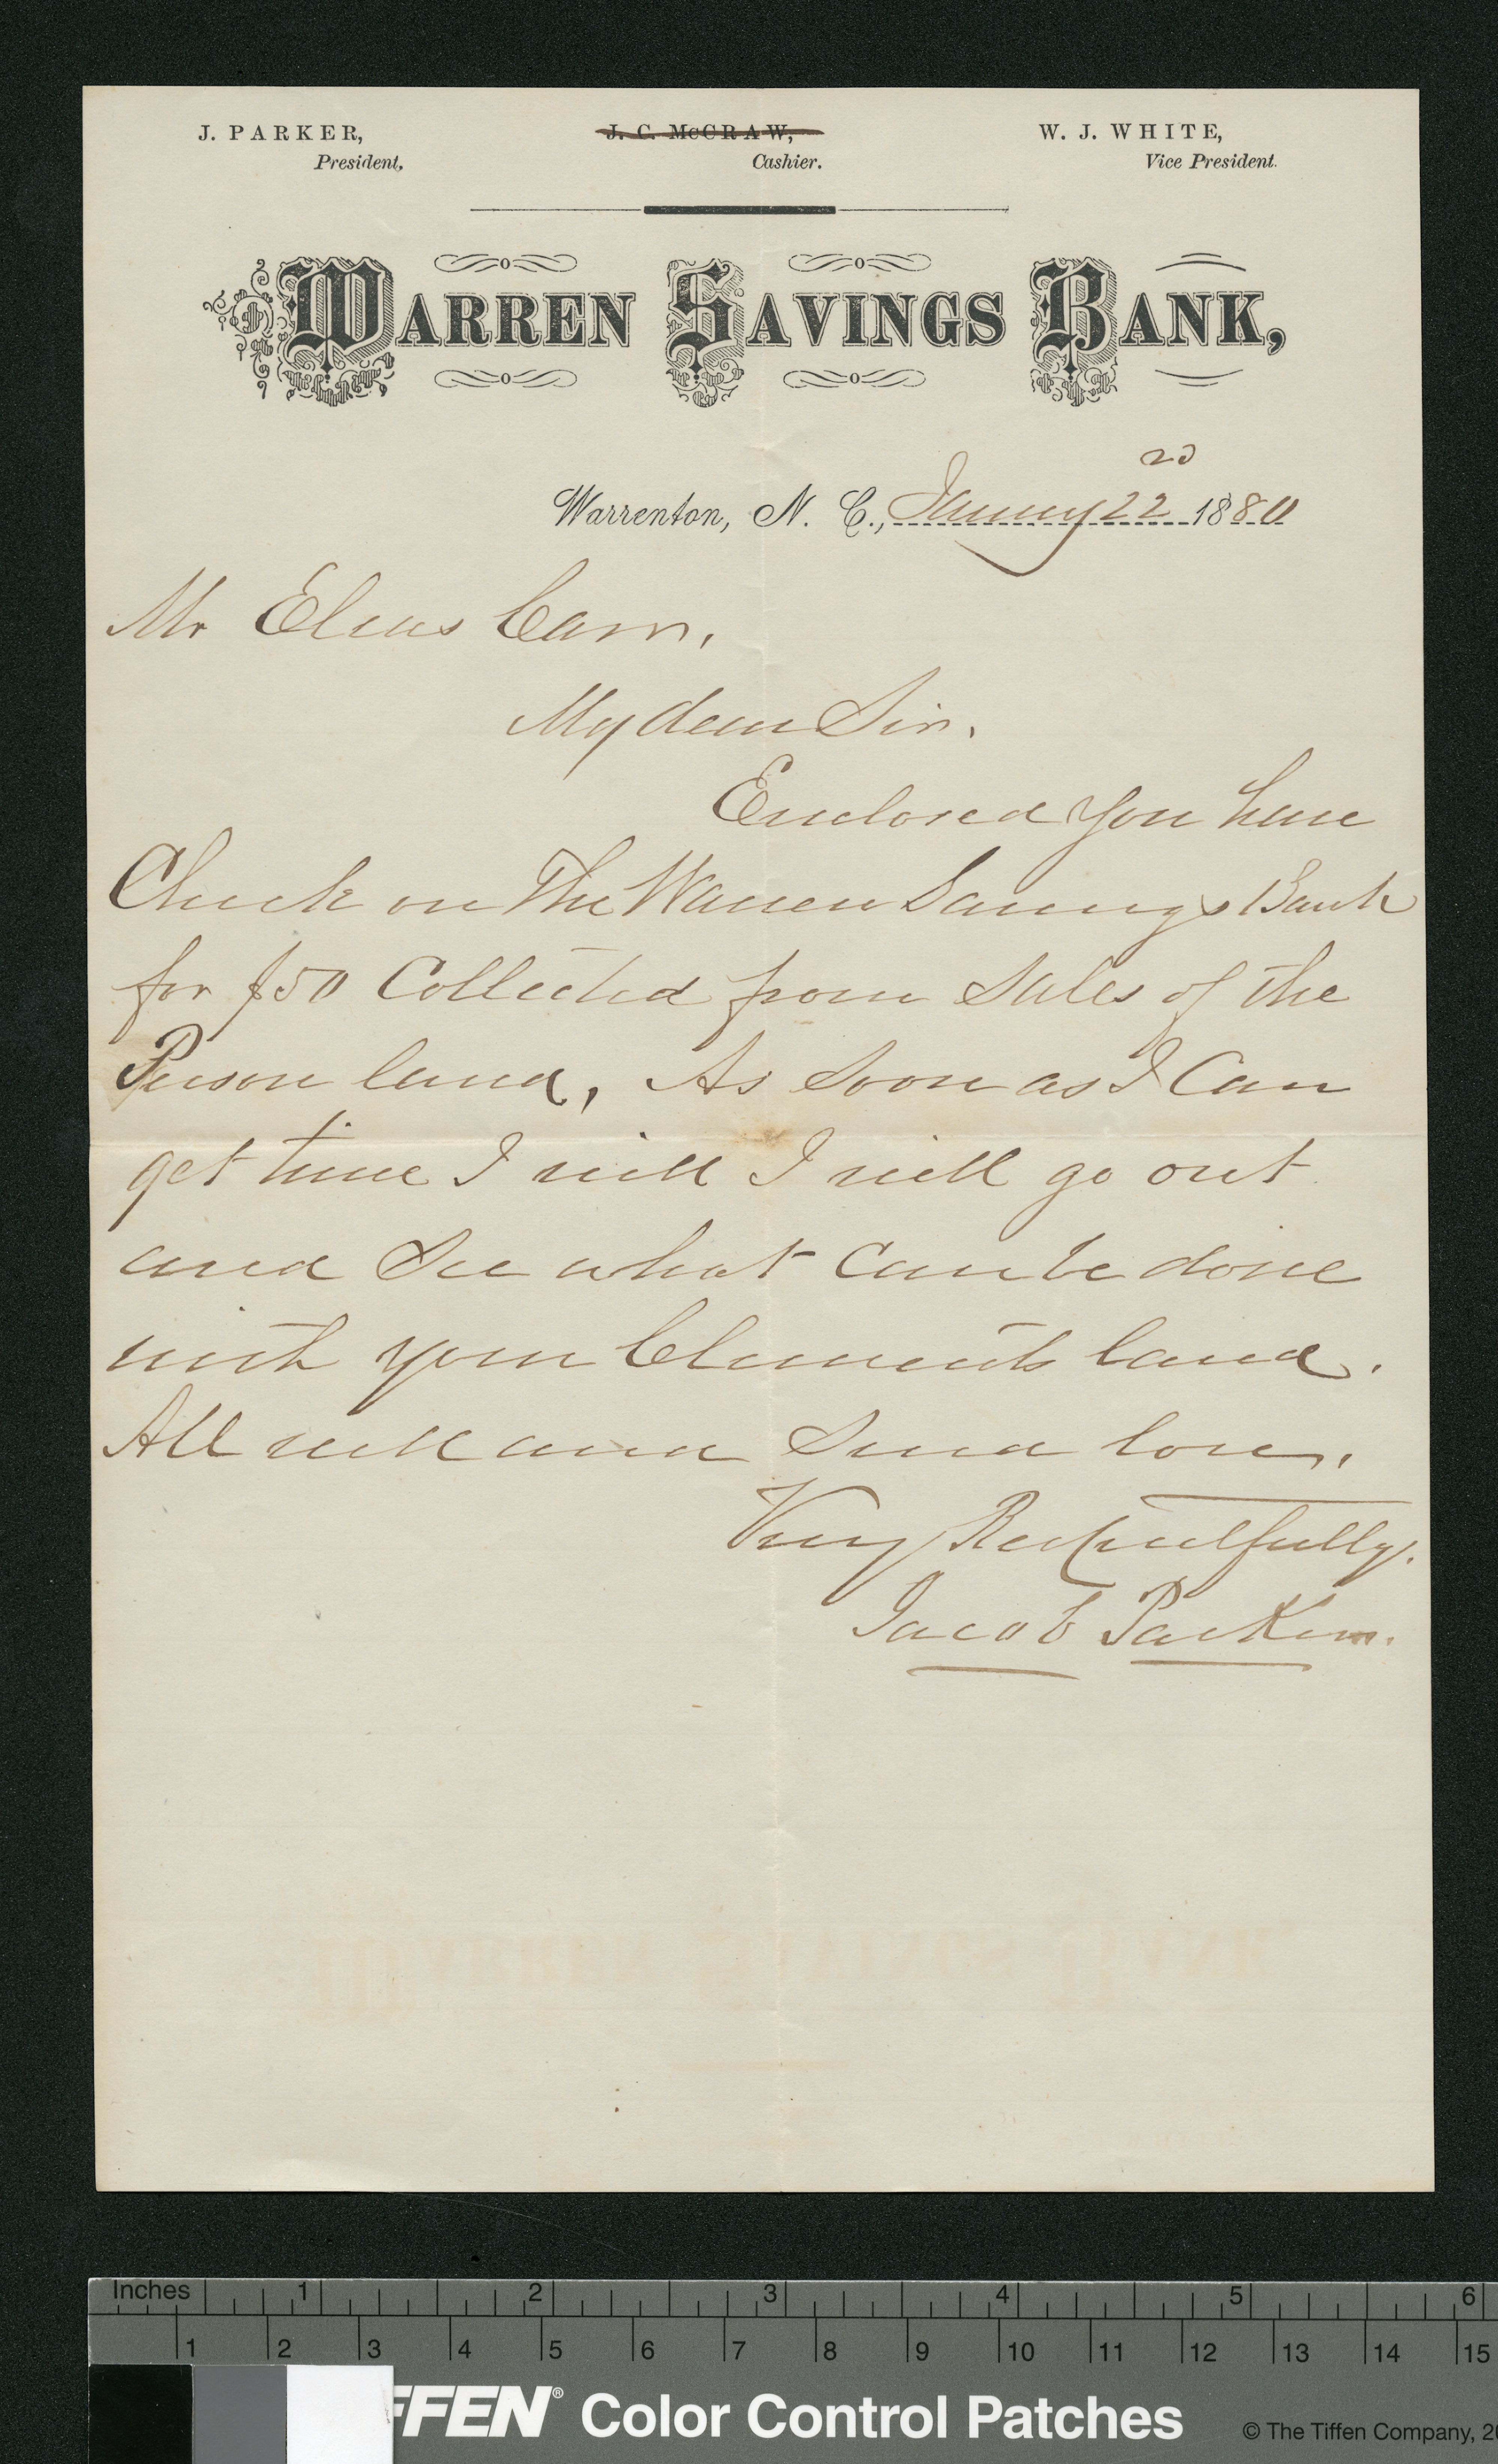 J. PARKER,
President,
J. C. McCRAW,
Cashier.
W. J. WHITE,
Vice President.
WARREN SAVINGS BANK,
Warrenton, N. C., January 22 nd 1880
Mr Elias Carr,
My dear Sir,
Enclosed you have
Check on The Warren Savings Bank
for $50 Collected from Sales of the
Person land, As Soon as I Can
get time I will I will go out
and See what Can be done
with your Clements land.
All well and Send love,
Very Respectfully.
Jacob Parker.
Inches 1 2 3 4 5 6
1 2 3 4 5 6 7 8 9 10 11 12 13 14 15
FFEN® Color Control Patches
© The Tiffen Company, 20